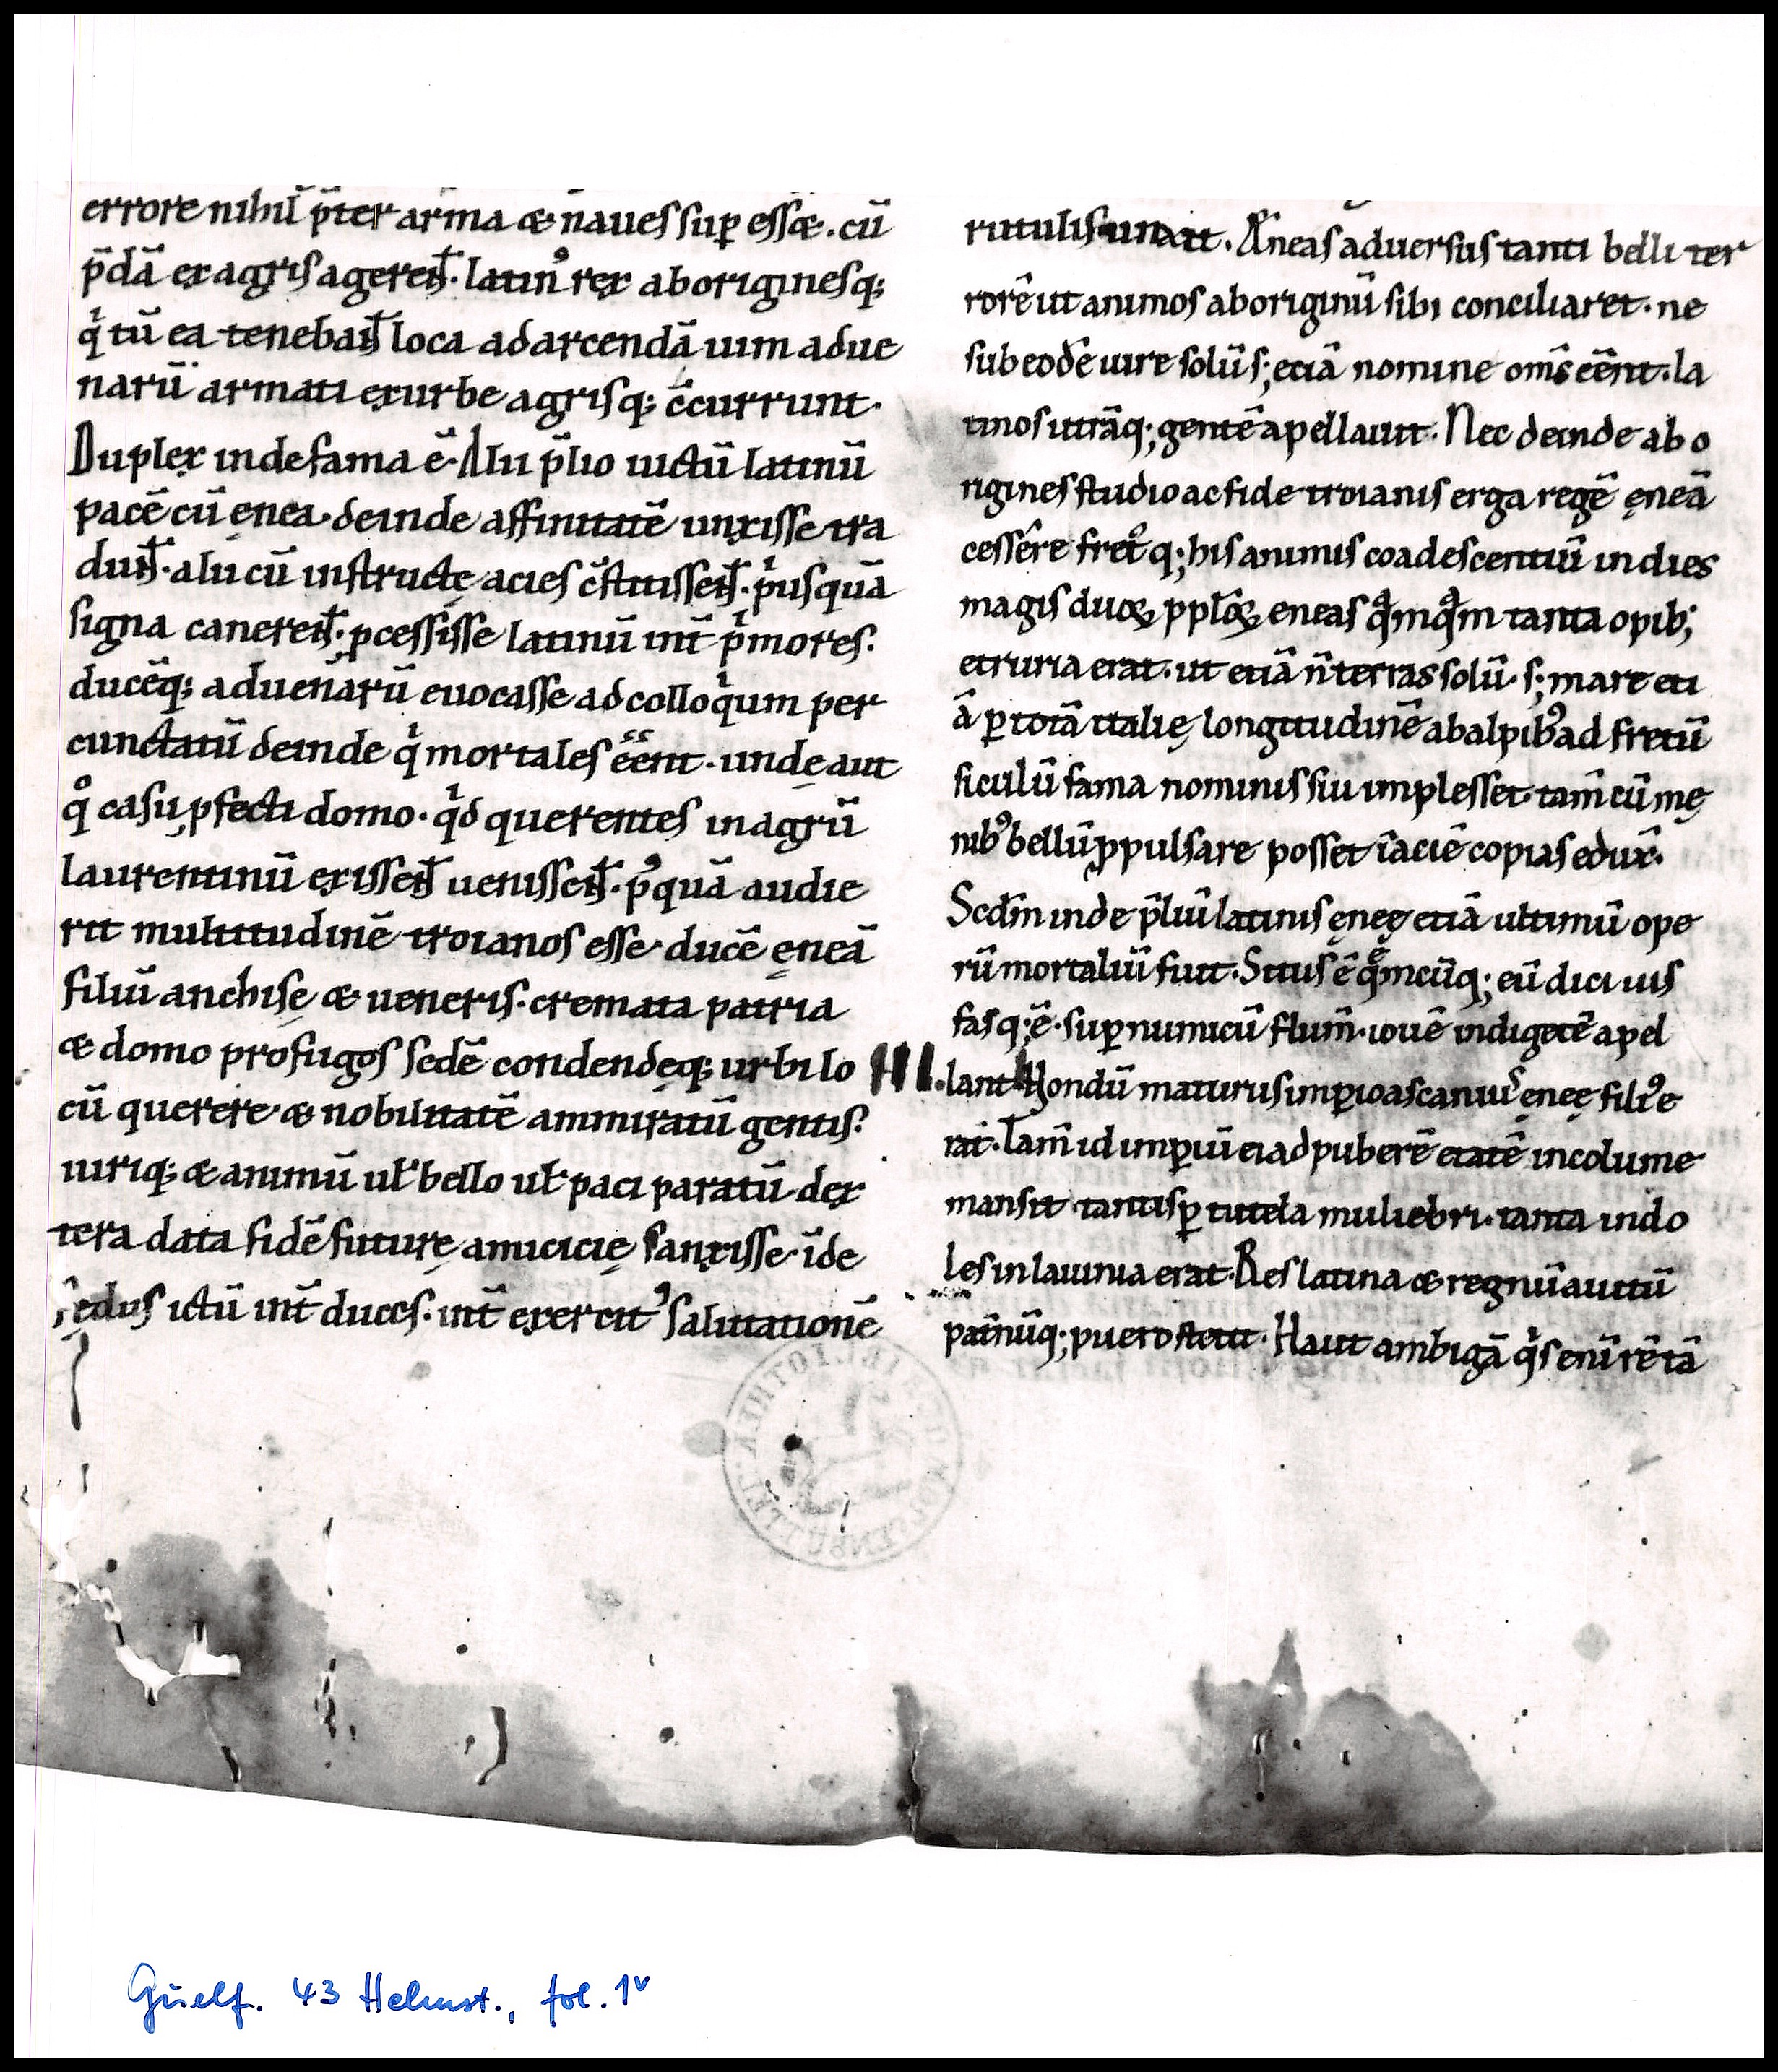 errore nihil̅ p̅ter arma & naues suꝑ ess&. cu̅
p̅da̅ ex agris agere̅t. latin⁹ rex aboriginesq;
qͥ tu̅ ea teneba̅t loca ad arcenda̅ uim adue
naru̅ armati ex urbe agrisq; c̅currunt.
Duplex inde fama e̅. Alii p̅lio uictu̅ latinu̅
pace̅ cu̅ ęnea. deinde affinitate̅ iunxisse tra
du̅t. alii cu̅ instructę acies c̅stitisse̅t. pͥusqua̅
signa canere̅t. ꝓcessisse latinu̅ int̅ pͥmores.
duce̅q; aduenaru̅ euocasse ad colloqͥum per
cunctatu̅ deinde qͥ mortales ee̅nt. unde aut
qͦ casu ꝓfecti domo. qͥd querentes in agru̅
laurentinu̅ exisse̅t uenisse̅t. p⁹qua̅ audie
rit multitudine̅ troianos esse. duce̅ ęnea̅
filiu̅ anchisę & ueneris. cremata patria
& domo profugos sede̅ condendęq; urbi lo
cu̅ querere & nobilitate̅ ammiratu̅ gentis.
uiriq; & animu̅ ul̅ bello ul̅ paci paratu̅. dex
tera data fide̅ futurę amicicię sanxisse. i̅de
fędus ictu̅ int̅ duces. int̅ exercit⁹ salutatione̅
rutulis Æneas aduersus tanti belli ter
rore̅ ut animos aboriginu̅ sibi conciliaret. ne
sub eode̅ iure solu̅ s; etia̅ nomine om̅s ee̅nt. la
tinos utra̅q; gente̅ apellauit. Nec deinde abo
rigines studio ac fide troianis erga rege̅ ęnea̅
cesse̅re fret⁹q; his animis coadescentiu̅ in dies
magis duoꝝ ppl̅oꝝ eneas qᵃmqᵃm tanta opib;
etruria erat. ut etia̅ n̅ terras solu̅. s; mare eti
a̅ ꝑ tota̅ italię longitudine̅ ab alpib⁹ ad fretu̅
siculu̅ fama nominis sui implesset. tam̅ cu̅ mę
nib⁹ bellu̅ ꝓpulsare posset i̅ acie̅ copias edux̅.
Scd̅m inde p̅liu̅ latinis ęnęę etia̅ ultimu̅ ope
ru̅ mortaliu̅ fuit. Situs e̅ qͤmcu̅q; eu̅ dici uis
fasq; e̅. suꝑ numicu̅ flum̅. ioue̅ indigete̅ apel
III. lant. Nondu̅ maturus imꝑio ascanius ęnęę fili⁹ e
rat. Tam̅ id imꝑiu̅ ei ad pubere̅ etate̅ incolume
mansit. tantisꝑ tutela muliebri. tanta indo
les in lauinia erat. Res latina & regnu̅ auitu̅
pat̅nu̅q; puero stetit. Haut ambiga̅ qͥs eni̅ re̅ ta̅
Guelf. 43 Helmst., fol. 1ᵛ